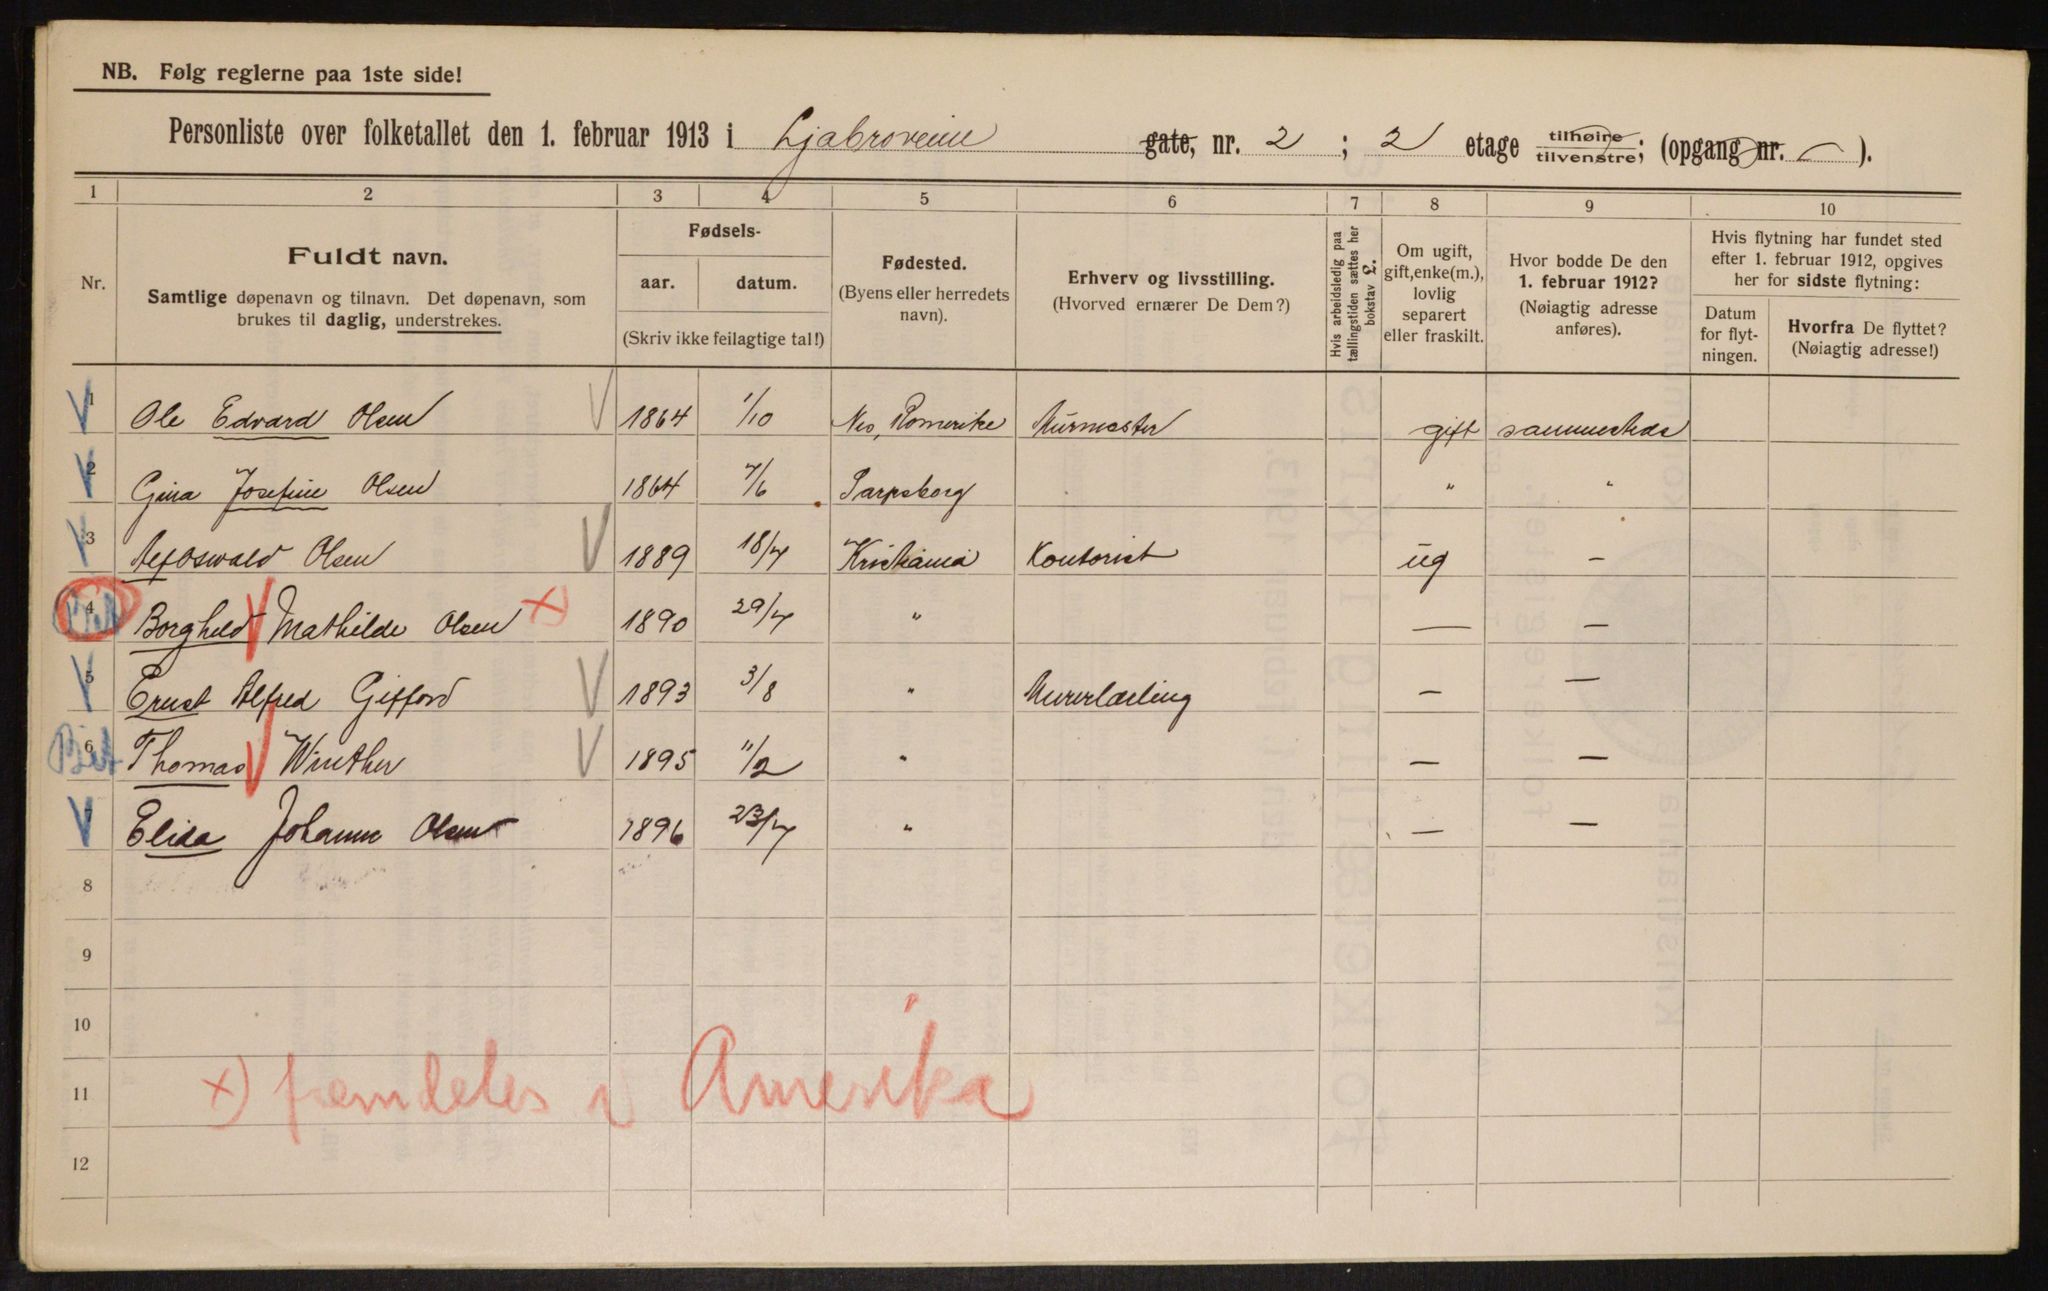 NB. Følg reglerne paa 1ste side!
Personliste over folketallet den 1. februar 1913 i Ljabroveien gate, nr. 2 ; 2 etage tilhøire tilvenstre; (opgang nr. — ).
1 2 3 4 5 6 7 8 9 10
Nr.
Fuldt navn.
Samtlige døpenavn og tilnavn. Det døpenavn, som
brukes til daglig, understrekes.
Fødsels-
aar. datum.
(Skriv ikke feilagtige tal!)
Fødested.
(Byens eller herredets
navn).
Erhverv og livsstilling.
(Hvorved ernærer De Dem?)
Hvis arbeidsledig paa
tællingstiden sættes her
bokstav £.
Om ugift,
gift, enke(m.),
lovlig
separert
eller fraskilt.
Hvor bodde De den
1. februar 1912?
(Nøiagtig adresse
anføres).
Hvis flytning har fundet sted
efter 1. februar 1912, opgives
her for sidste flytning:
Datum
for flyt-
ningen.
Hvorfra De flyttet?
(Nøiagtig adresse!)
1 Ole Edvard Olsen 1864 1/10 Nes, Romerike Murmester gift sammesteds
2 Gina Josefine Olsen 1864 7/6 Sarpsborg " "
3 Alf Oswald Olsen 1889 18/7 Kristiania Kontorist ug —
4 Borghild Mathilde Olsen x) 1890 29/7 " — —
5 Ernst Alfred Gifford 1893 3/8 " Murerlærling — —
6 Thomas Winther 1895 11/2 " — —
7 Elida Johanne Olsen 1896 23/7 " — —
8
9
10
11 x) fremdeles i Amerika
12